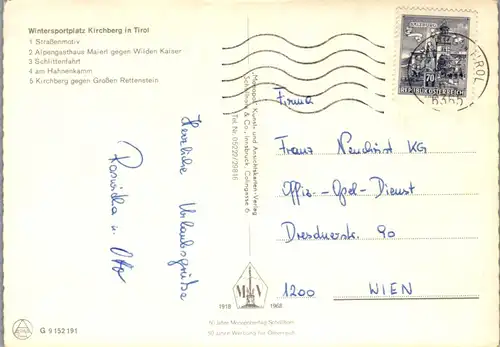 Wintersportplatz Kirchberg in Tirol
1 Straßenmotiv
2 Alpengasthaus Maierl gegen Wilden Kaiser
3 Schlittenfahrt
4 am Hahnenkamm
5 Kirchberg gegen Großen Rettenstein
Herzliche Urlaubsgrüße
Roswitha u. Otto
Kunst- und Ansichtskarten-Verlag
& Co., Innsbruck, Colingasse 6
Tel. Nr. 05222/29816
70
REPUBLIK ÖSTERREICH
TIROL
6365
Firma
Franz Neuhirst KG
Offiz.-Opel-Dienst
Dresdnerstr. 90
1200 WIEN
1918 1968
50 Jahre
50 Jahre Werbung für Österreich
G 9152191